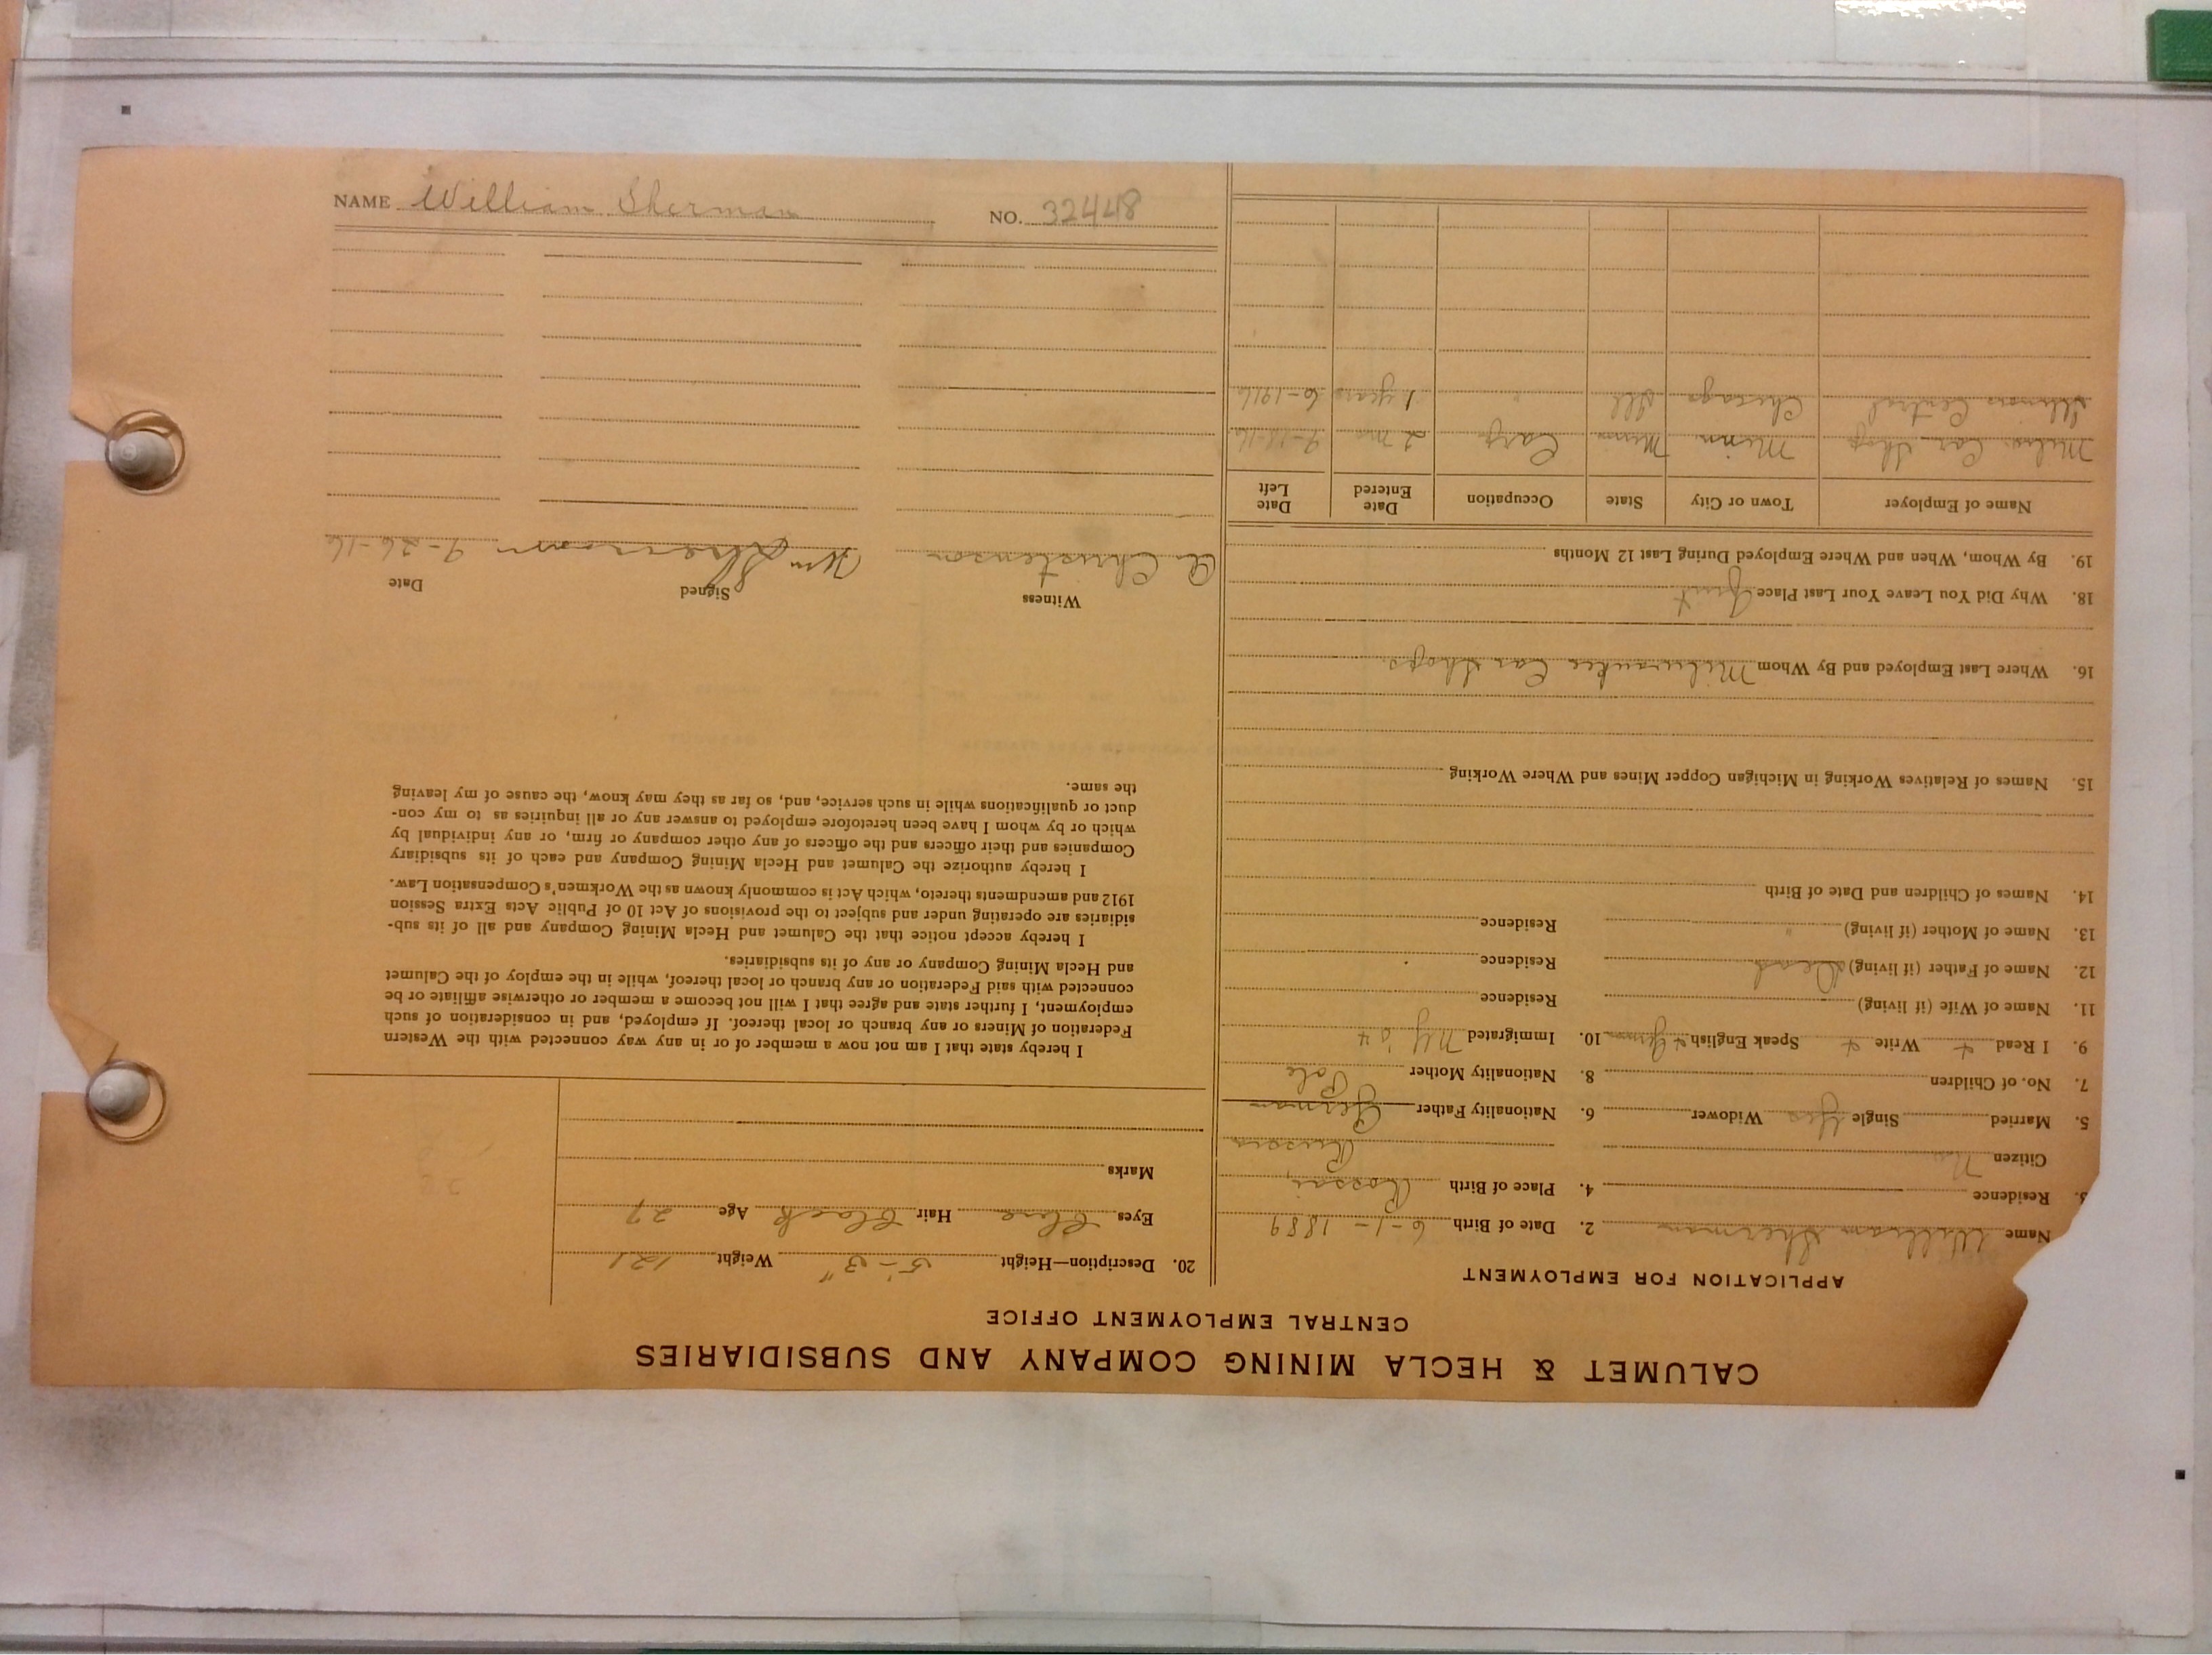 CALUMET & HECLA MINING COMPANY AND SUBSIDIARIES
CENTRAL EMPLOYMENT OFFICE
APPLICATION FOR EMPLOYMENT
Name William Sherman 2. Date of Birth 6-1-1889
3. Residence 4. Place of Birth
Citizen Russia
5. Married Single Yes Widower 6. Nationality Father German
7. No. of Children 8. Nationality Mother Pole
9. I Read + Write + Speak English + German 10. Immigrated NY 04
11. Name of Wife (if living) Residence
12. Name of Father (if living) Dead Residence
13. Name of Mother (if living) " Residence
14. Names of Children and Date of Birth
15. Names of Relatives Working in Michigan Copper Mines and Where Working
16. Where Last Employed and By Whom Milwaukee Car Shops
18. Why Did You Leave Your Last Place Quit
19. By Whom, When and Where Employed During Last 12 Months
Name of Employer Town or City State Occupation Date Entered Date Left
Milw. Car Shop Minn. Minn Carp 2 mo 9-11-16
Illinois Central Chicago Ill " 1 years 6-1916
20. Description—Height 5'-3" Weight 121
Eyes Blue Hair Black Age 27
Marks
I hereby state that I am not now a member of or in any way connected with the Western
Federation of Miners or any branch or local thereof. If employed, and in consideration of such
employment, I further state and agree that I will not become a member or otherwise affiliate or be
connected with said Federation or any branch or local thereof, while in the employ of the Calumet
and Hecla Mining Company or any of its subsidiaries.
I hereby accept notice that the Calumet and Hecla Mining Company and all of its sub-
sidiaries are operating under and subject to the provisions of Act 10 of Public Acts Extra Session
1912 and amendments thereto, which Act is commonly known as the Workmen's Compensation Law.
I hereby authorize the Calumet and Hecla Mining Company and each of its subsidiary
Companies and their officers and the officers of any other company or firm, or any individual by
which or by whom I have been heretofore employed to answer any or all inquiries as to my con-
duct or qualifications while in such service, and, so far as they may know, the cause of my leaving
the same.
Witness Signed Date
A. Christenson Wm Sherman 9-26-16
NAME William Sherman NO. 32448